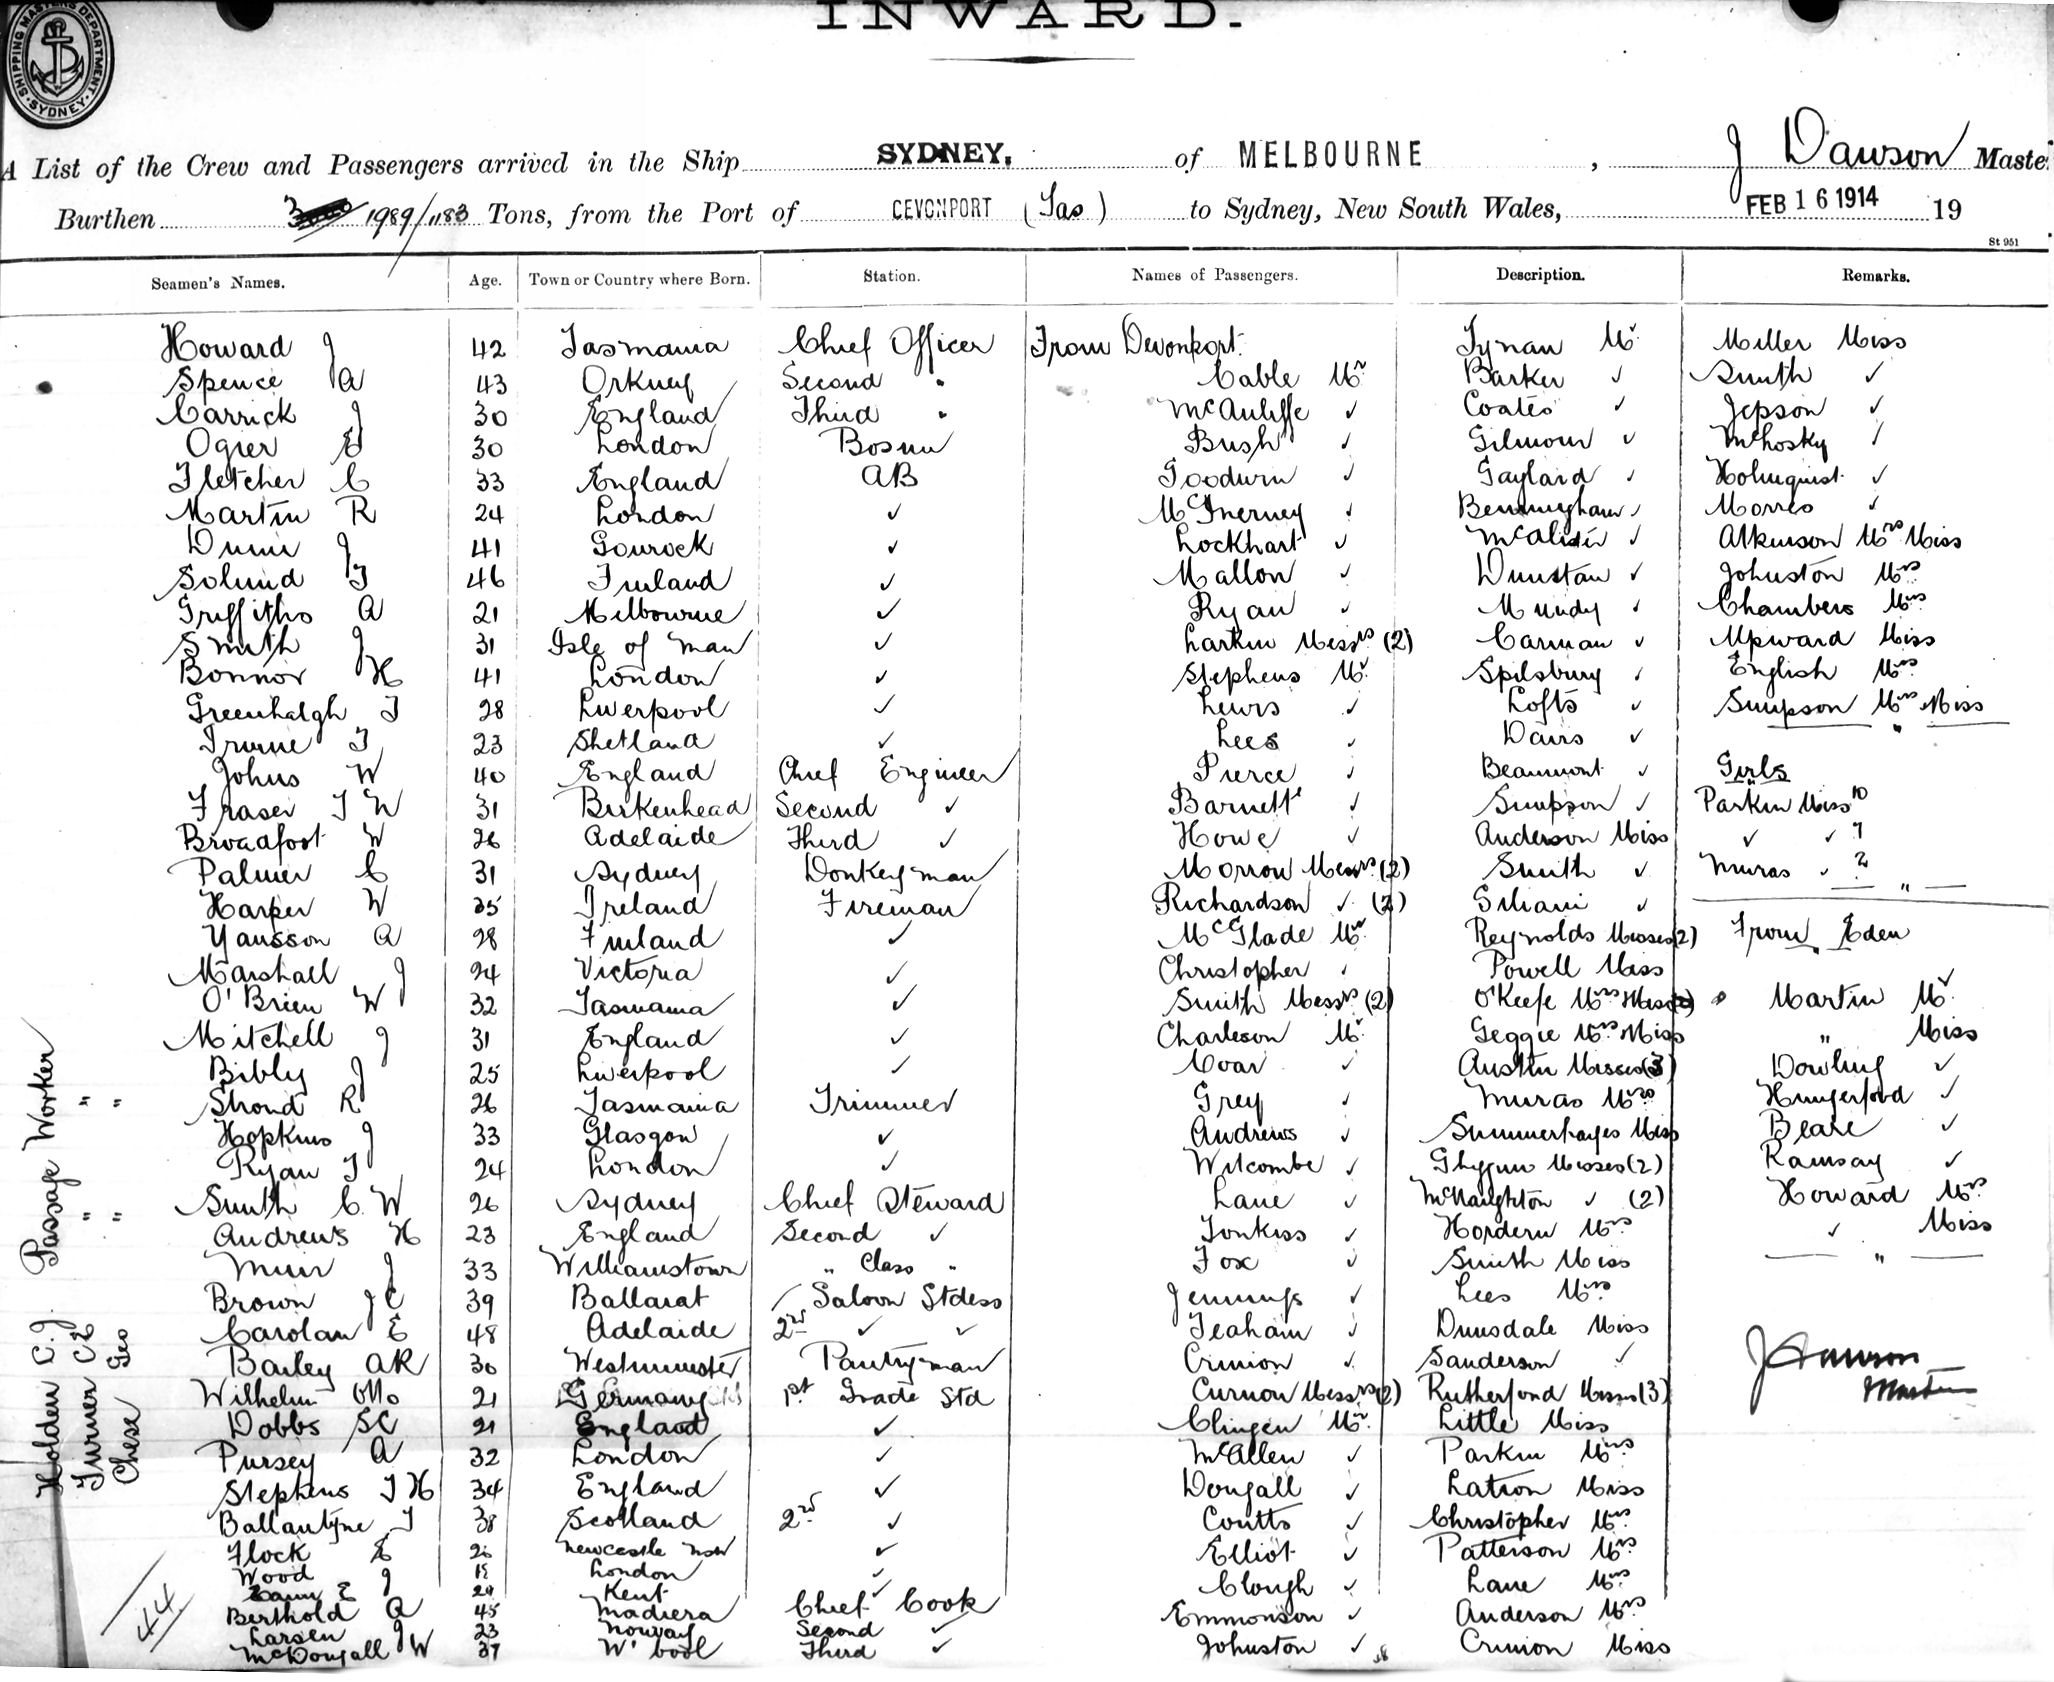 INWARD.
SHIPPING MASTERS DEPARTMENT SYDNEY
A List of the Crew and Passengers arrived in the Ship SYDNEY, of MELBOURNE, J Dawson Master
Burthen 1989/1183 Tons, from the Port of DEVONPORT (Tas) to Sydney, New South Wales, FEB 16 1914 19
St 951
Seamen's Names. Age. Town or Country where Born. Station. Names of Passengers. Description. Remarks.
Howard J 42 Tasmania Chief Officer From Devonport. Tynan Mr Miller Miss
Spence A 43 Orkney Second " Cable Mr Barker ✓ Smith ✓
Carrick J 30 England Third " McAuliffe ✓ Coates ✓ Jepson ✓
Ogier E 30 London Bosun Bush ✓ Gilmour ✓ McLosky ✓
Fletcher C 33 England AB Goodwin ✓ Gaylard ✓ Holmquist ✓
Martin R 24 London ✓ McInerney ✓ Benningham ✓ Morres ✓
Dunn J 41 Gourock ✓ Lockhart ✓ McAlister ✓ Atkinson Mrs Miss
Solund J 46 Finland ✓ Mallon ✓ Dunstan ✓ Johnston Mrs
Griffiths A 21 Melbourne ✓ Ryan ✓ Mundy ✓ Chambers Mrs
Smith J 31 Isle of Man ✓ Larkin Messrs (2) Carman ✓ Upward Miss
Bonnor H 41 London ✓ Stephens Mr Spilsbury ✓ English Mrs
Greenhalgh T 28 Liverpool ✓ Lewis ✓ Lofts ✓ Simpson Mrs Miss
Irvine T 23 Shetland ✓ Lees ✓ Davis ✓ "
Johns W 40 England Chief Engineer Pierce ✓ Beaumont ✓ Girls
Fraser T W 31 Birkenhead Second ✓ Barnett ✓ Simpson ✓ Parkin Miss 10
Broadfoot W 26 Adelaide Third ✓ Howe ✓ Anderson Miss ✓ ✓ 7
Palmer C 31 Sydney Donkeyman Morrow Messrs (2) Smith ✓ Muras ✓ 2
Harper W 35 Ireland Fireman Richardson ✓ (2) Giliani ✓ "
Yansson A 28 Finland ✓ McGlade Mr Reynolds Misses (2) From Eden
Marshall J 24 Victoria ✓ Christopher ✓ Powell Miss
O'Brien W 32 Tasmania ✓ Smith Messrs (2) O'Keefe Mrs Misses Martin Mr
Mitchell J 31 England ✓ Charleson Mr Geggie Mrs Miss " Miss
Bibly J 25 Liverpool ✓ Coar ✓ Austin Misses (3) Dowling ✓
Strond R 26 Tasmania Trimmer Grey ✓ Muras Mrs Hungerford ✓
Hopkins J 33 Glasgow ✓ Andrews ✓ Summerhayes Miss Beare ✓
Ryan T 24 London ✓ Witcombe ✓ Misses (2) Ramsay ✓
Smith C W 26 Sydney Chief Steward Lane ✓ McNaughton ✓ (2) Howard Mrs
Andrews H 23 England Second ✓ Tonkiss ✓ Hordern Mrs ✓ Miss
Muir J 33 Williamstown " Class " Fox ✓ Smith Miss "
Brown J C 39 Ballarat Saloon Stdess Jennings ✓ Lees Mrs
Carolan E 48 Adelaide 2nd ✓ ✓ Teaham ✓ Dunsdale Miss
Bailey AR 30 Westminster Pantryman Crinion ✓ Sanderson ✓ J Dawson
Wilhelm Otto 21 Germany 1st Grade Std Curnow Messrs (2) Rutherfond Misses (3) Master
Dobbs SC 21 England ✓ Clingen Mr Little Miss
Pursey A 32 London ✓ McAllen ✓ Parkin Mrs
Stephens J H 34 England ✓ Dougall ✓ Latron Miss
Ballantyne J 38 Scotland 2nd ✓ Coutts ✓ Christopher Mrs
Flock E 26 Newcastle NSW ✓ Elliot ✓ Patterson Mrs
Wood J London ✓ Clough ✓ Lane Mrs
E 29 Kent ✓
Berthold A 45 Madiera Chief Cook Emmonson ✓ Anderson Mrs
Larsen J 23 Norway Second ✓ Johnston ✓ Crinion Miss
McDougall W 37 W'bool Third ✓
Holden C.J. Passage Worker
Turner CE " "
Chese Geo " "
44